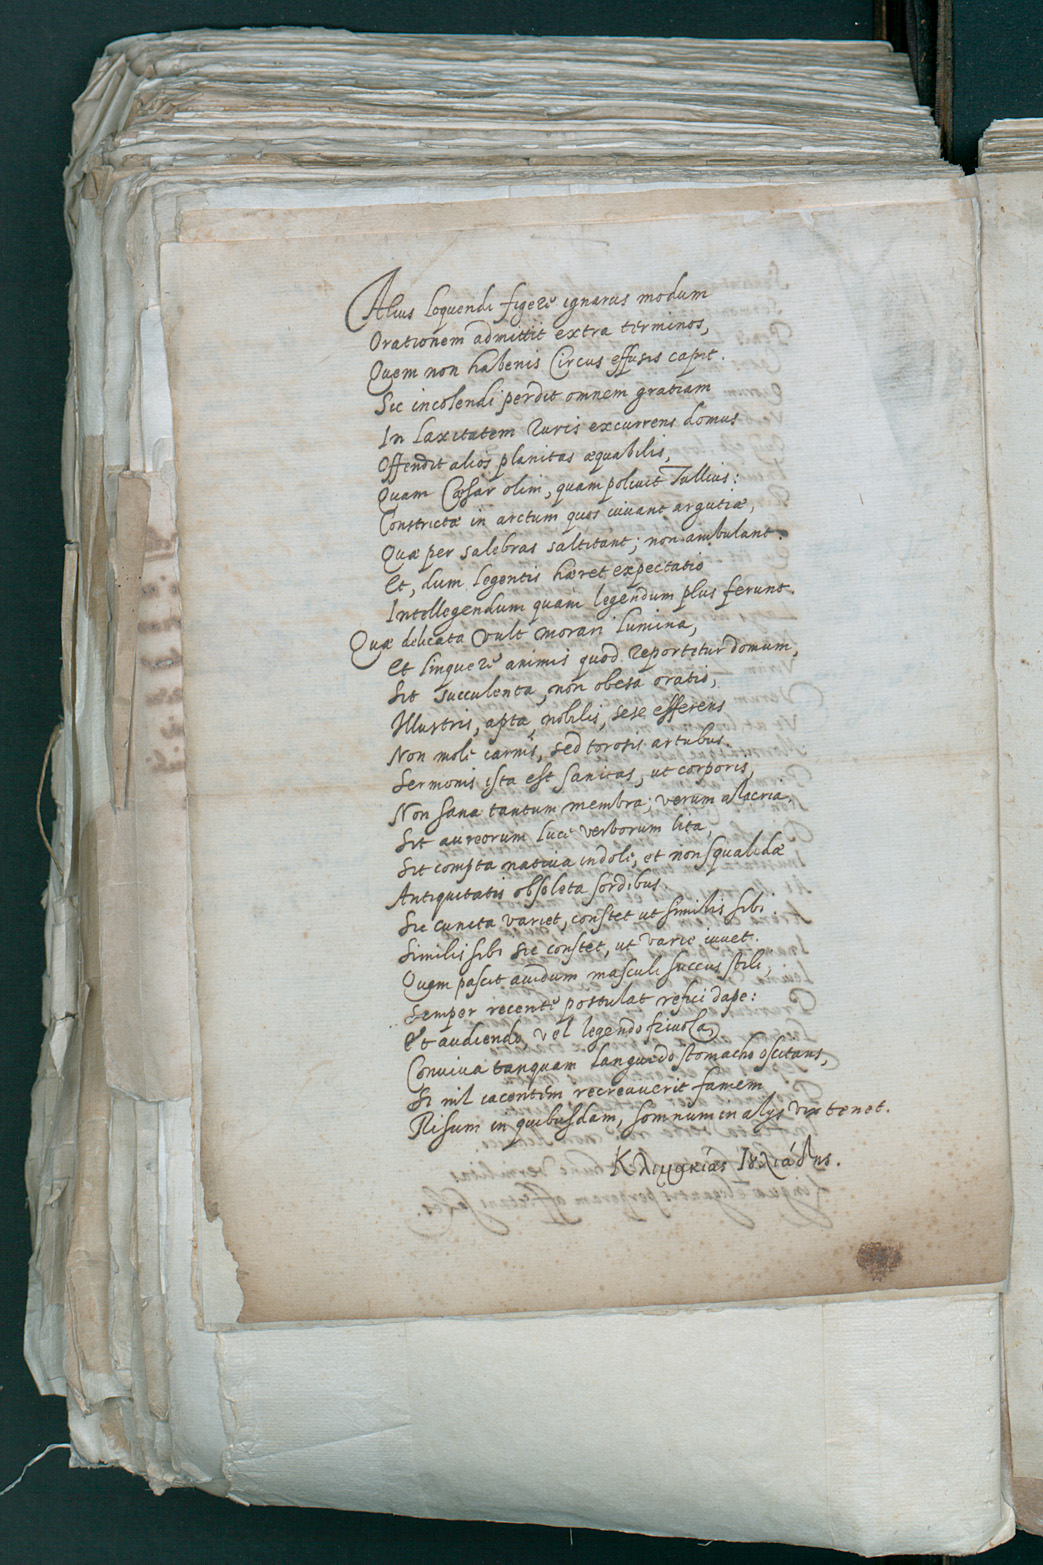 Alius loquendi figere ignarus modum
Orationem admittit extra terminos,
Quem non habenis Circus effusis capit.
Sic incolendi perdit omnem gratiam
In laxitatem ruris excurrens domus
Offendit alios planitas æquabilis,
Quam Cæsar olim, quam poliuit Tullius:
Constrictæ in arctum quos iuuant argutiæ,
Quæ per salebras saltitant; non ambulant.
Et, dum legentis hæret expectatio
Intellegendum quam legendum plus ferunt.
Quæ delicata vult morari lumina,
Et linquere animis quod reportetur domum,
Sit succulenta, non obesa oratio,
Illustris, apta, nobilis, sese efferens
Non mole carnis, sed torosis artubus.
Sermonis ista est sanitas, ut corporis,
Non sana tantum membra; verum alacria.
Sit aureorum luce verborum lita,
Sit compta natiua indole, et non squalidæ
Antiquitatis obsoleta sordibus.
Sic cuncta variet, constet ut similis sibi
Similis sibi sic constet, ut varie iuuet.
Quem pascit auidum masculi succus stili,
Semper recente postulat refici dape:
Et audiendo, vel legendo friuola,
Conuiua tanquam languido stomacho oscitans,
Si nil iacentem recreauerit famem
Risum in quibusdam, somnum in alijs vix tenet.
Ιουλιάδης.